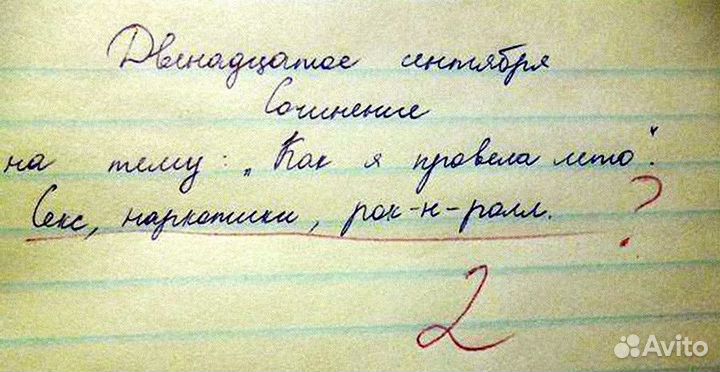 Двенадцатое сентября
Сочинение
на тему: „Как я провела лето".
Секс, наркотики, рок-н-ролл. ?
2
Avito